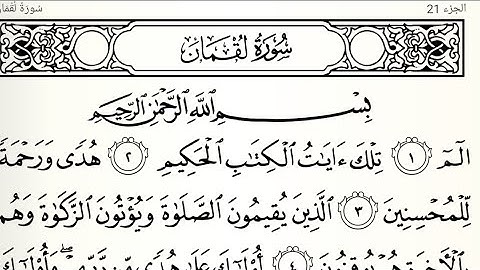 الجزء 21 سُورَةُ لُقْمَانَ
سُورَةُ لُقْمَانَ
بِسْمِ ٱللَّهِ ٱلرَّحْمَٰنِ ٱلرَّحِيمِ
الٓمٓ ١ تِلْكَ ءَايَٰتُ ٱلْكِتَٰبِ ٱلْحَكِيمِ ٢ هُدًى وَرَحْمَةً
لِّلْمُحْسِنِينَ ٣ ٱلَّذِينَ يُقِيمُونَ ٱلصَّلَوٰةَ وَيُؤْتُونَ ٱلزَّكَوٰةَ وَهُم
بِٱلْأٓخِرَةِ هُمْ يُوقِنُونَ ٤ أُو۟لَٰٓئِكَ عَلَىٰ هُدًى مِّن رَّبِّهِمْ ۖ وَأُو۟لَٰٓئِكَ